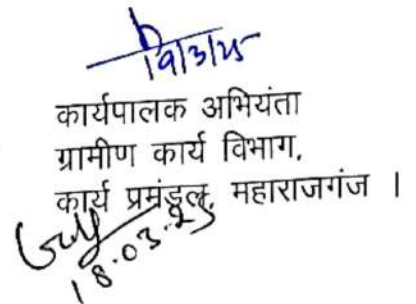 19/3/25
कार्यपालक अभियंता
ग्रामीण कार्य विभाग,
कार्य प्रमंडल, महाराजगंज ।
18.03.25